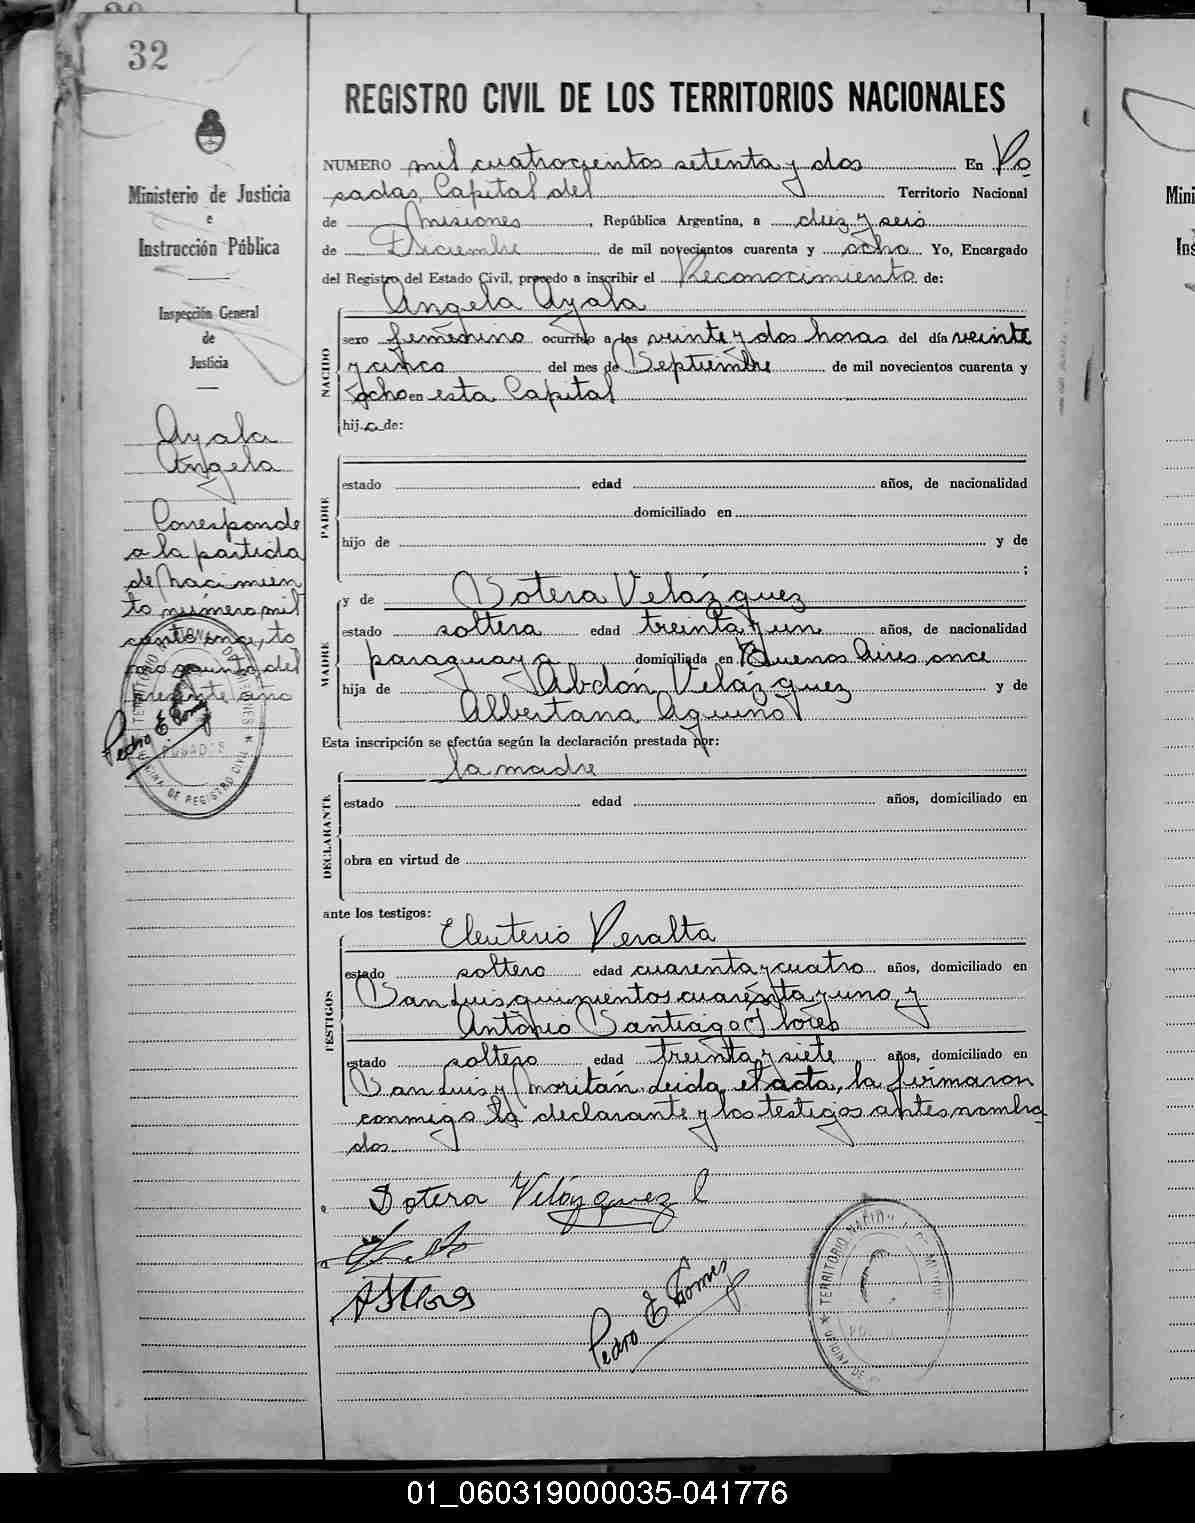 32
Ministerio de Justicia
e
Instrucción Pública
Inspección General
de
Justicia
Ayala
Angela
Corresponde
a la partida
de nacimien
to número mil
ciento once, to
mo quinto del
presente año
Pedro E Gomez
REGISTRO CIVIL DE LOS TERRITORIOS NACIONALES
NUMERO mil cuatrocientos setenta y dos En Po
sadas, Capital del Territorio Nacional
de Misiones, República Argentina, a diez y seis
de Diciembre de mil novecientos cuarenta y ocho Yo, Encargado
del Registro del Estado Civil, procedo a inscribir el Reconocimiento de:
Angela Ayala
NACIDO
sexo femenino ocurrido a las veinte y dos horas del día veinte
y cinco del mes de Septiembre de mil novecientos cuarenta y
ocho en esta Capital
hija de:
PADRE
estado edad años, de nacionalidad
domiciliado en
hijo de y de
;
y de Sotera Velázquez
MADRE
estado soltera edad treinta y un años, de nacionalidad
paraguaya domiciliada en Buenos Aires once
hija de Abdón Velázquez y de
Albertana Aquino
Esta inscripción se efectúa según la declaración prestada por:
la madre
DECLARANTE
estado edad años, domiciliado en
obra en virtud de
ante los testigos:
Eleuterio Peralta
TESTIGOS
estado soltero edad cuarenta y cuatro años, domiciliado en
San Luis quinientos cuarenta y uno, y
Antonio Santiago Flores
estado soltero edad treinta y siete años, domiciliado en
San Luis y Moritán. Leida el acta, la firmaron
conmigo la declarante y los testigos antes nombra
dos.
Sotera Velázquez
ASFlores
Pedro E Gomez
TERRITORIO NACIONAL DE MISIONES
OFICINA DE REGISTRO CIVIL
POSADAS
01_060319000035-041776